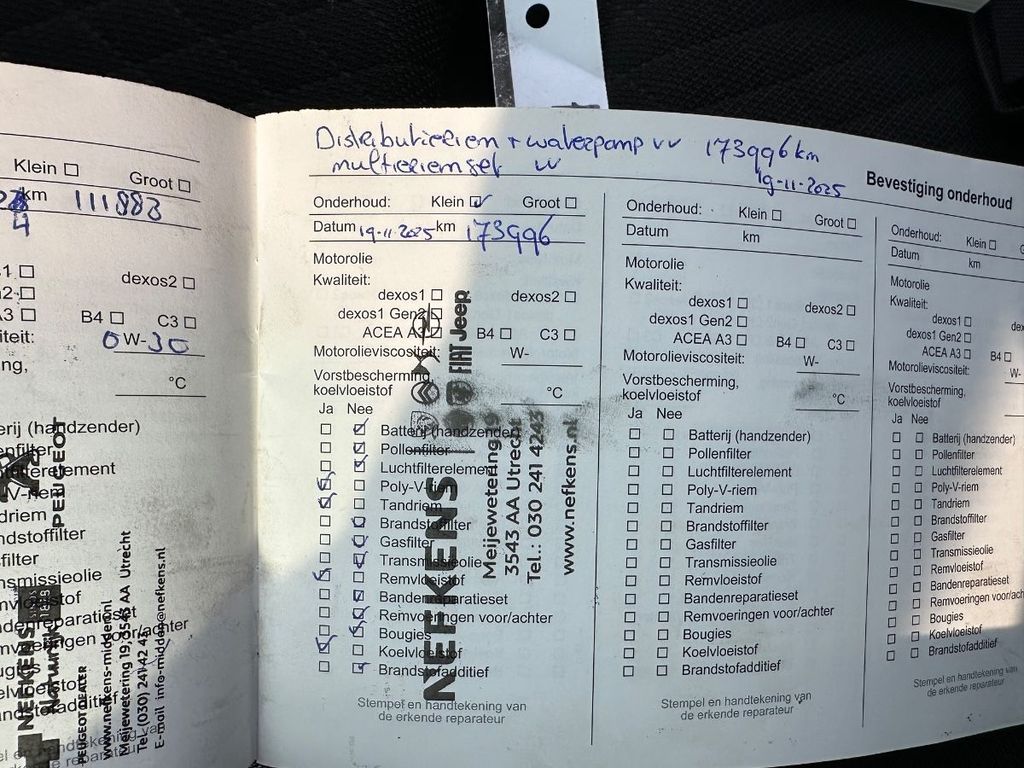 Klein ☐ Groot ☐
km 111883
4
1 ☐ dexos2 ☐
2: ☐
A3 ☐ B4 ☐ C3 ☐
iteit: 0W-30
ng,
°C
erij (handzender)
enfilter
tfilterelement
y-V-riem
driem
ndstoffilter
sfilter
nsmissieolie
mvloeistof
ndenreparatieset
mvoeringen voor/achter
ugies
elvloeistof
ndstofadditief
el en handtekening van
PEUGEOT
NEFKENS
Natuurlijk!
PEUGEOT DEALER
www.nefkens-midden.nl
Meijewetering 19, 3543 AA Utrecht
Tel. (030) 241 42 43
E-mail info-midden@nefkens.nl
Distributieriem + waterpomp vv 173996 km
multiriemset vv 19-11-2025
Bevestiging onderhoud
Onderhoud: Klein ☑ Groot ☐
Datum 19-11-2025 km 173996
Motorolie
Kwaliteit:
dexos1 ☐ dexos2 ☐
dexos1 Gen2 ☐
ACEA A3 ☐ B4 ☐ C3 ☐
Motorolieviscositeit: W-
Vorstbescherming,
koelvloeistof °C
Ja Nee
☐ ☑ Batterij (handzender)
☐ ☑ Pollenfilter
☐ ☑ Luchtfilterelement
☑ ☐ Poly-V-riem
☑ ☐ Tandriem
☐ ☑ Brandstoffilter
☐ ☑ Gasfilter
☐ ☑ Transmissieolie
☑ ☐ Remvloeistof
☐ ☑ Bandenreparatieset
☐ ☑ Remvoeringen voor/achter
☐ ☑ Bougies
☑ ☐ Koelvloeistof
☐ ☑ Brandstofadditief
Stempel en handtekening van
de erkende reparateur
NEFKENS
FIAT Jeep
Meijewetering
3543 AA Utrecht
Tel.: 030 241 4243
www.nefkens.nl
Onderhoud: Klein ☐ Groot ☐
Datum km
Motorolie
Kwaliteit:
dexos1 ☐ dexos2 ☐
dexos1 Gen2 ☐
ACEA A3 ☐ B4 ☐ C3 ☐
Motorolieviscositeit: W-
Vorstbescherming,
koelvloeistof °C
Ja Nee
☐ ☐ Batterij (handzender)
☐ ☐ Pollenfilter
☐ ☐ Luchtfilterelement
☐ ☐ Poly-V-riem
☐ ☐ Tandriem
☐ ☐ Brandstoffilter
☐ ☐ Gasfilter
☐ ☐ Transmissieolie
☐ ☐ Remvloeistof
☐ ☐ Bandenreparatieset
☐ ☐ Remvoeringen voor/achter
☐ ☐ Bougies
☐ ☐ Koelvloeistof
☐ ☐ Brandstofadditief
Stempel en handtekening van
de erkende reparateur
Onderhoud: Klein ☐ G
Datum km
Motorolie
Kwaliteit:
dexos1 ☐ dex
dexos1 Gen2 ☐
ACEA A3 ☐ B4 ☐
Motorolieviscositeit: W-
Vorstbescherming,
koelvloeistof
Ja Nee
☐ ☐ Batterij (handzender)
☐ ☐ Pollenfilter
☐ ☐ Luchtfilterelement
☐ ☐ Poly-V-riem
☐ ☐ Tandriem
☐ ☐ Brandstoffilter
☐ ☐ Gasfilter
☐ ☐ Transmissieolie
☐ ☐ Remvloeistof
☐ ☐ Bandenreparatieset
☐ ☐ Remvoeringen voor/ach
☐ ☐ Bougies
☐ ☐ Koelvloeistof
☐ ☐ Brandstofadditief
Stempel en handtekening van
de erkende reparateur